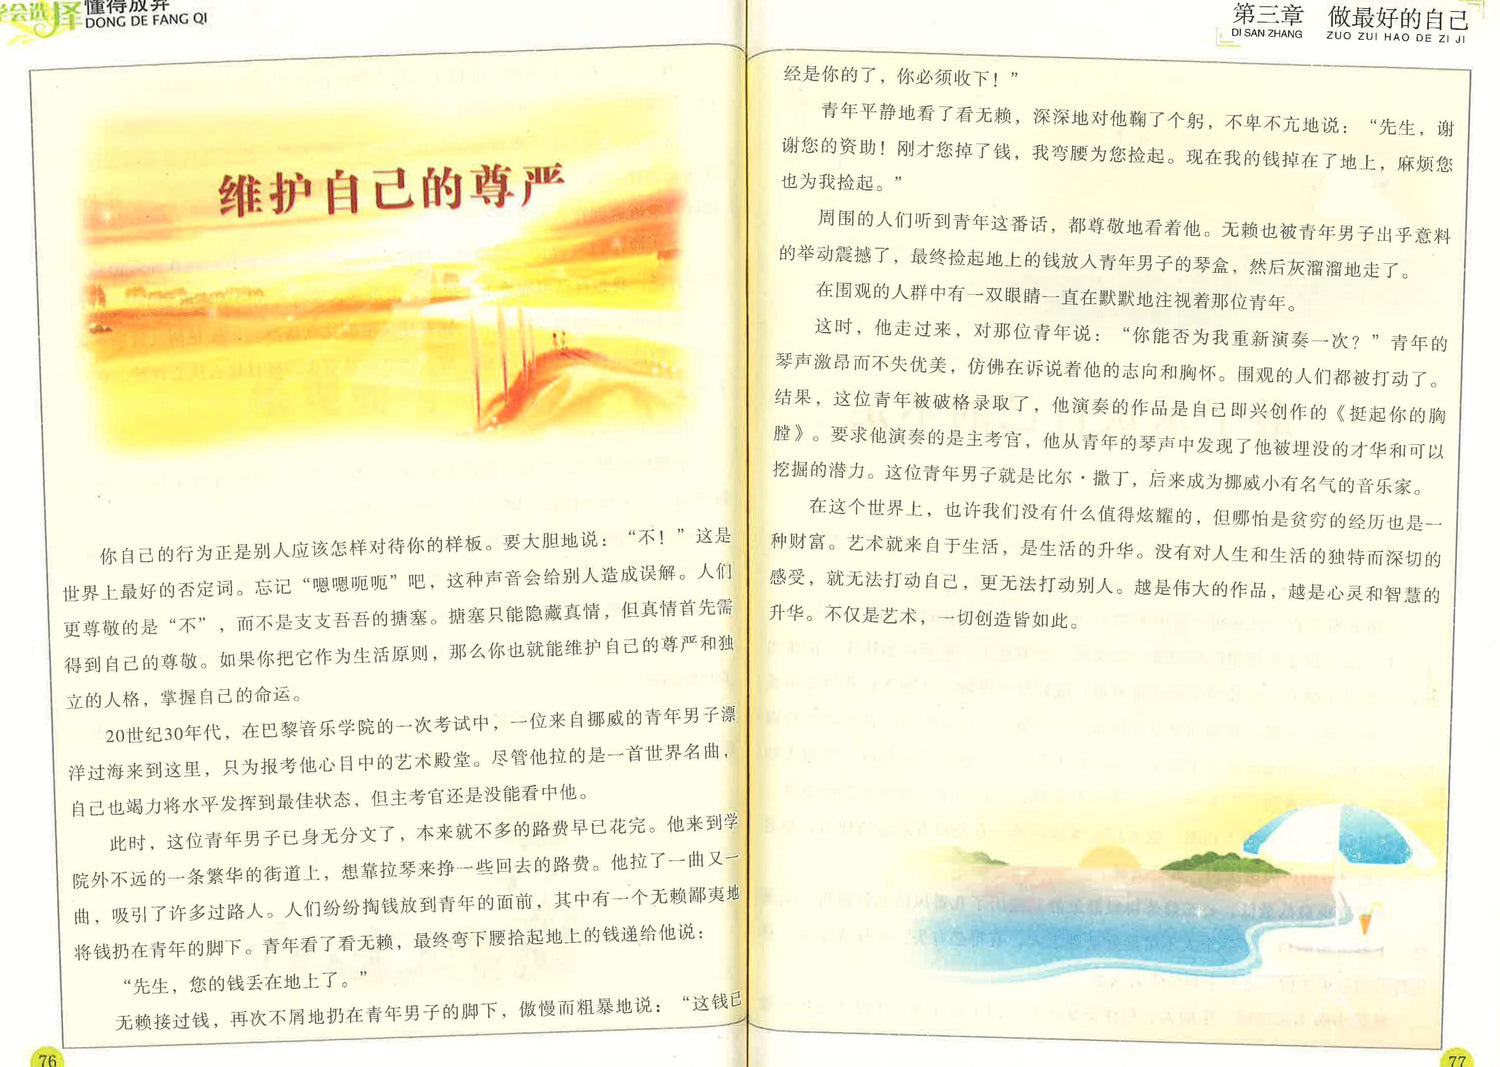 学会选择
懂得放弃
DONG DE FANG QI
维护自己的尊严
你自己的行为正是别人应该怎样对待你的样板。要大胆地说：“不！”这是
世界上最好的否定词。忘记“嗯嗯呃呃”吧，这种声音会给别人造成误解。人们
更尊敬的是“不”，而不是支支吾吾的搪塞。搪塞只能隐藏真情，但真情首先需
得到自己的尊敬。如果你把它作为生活原则，那么你也就能维护自己的尊严和独
立的人格，掌握自己的命运。
20世纪30年代，在巴黎音乐学院的一次考试中，一位来自挪威的青年男子漂
洋过海来到这里，只为报考他心目中的艺术殿堂。尽管他拉的是一首世界名曲，
自己也竭力将水平发挥到最佳状态，但主考官还是没能看中他。
此时，这位青年男子已身无分文了，本来就不多的路费早已花完。他来到学
院外不远的一条繁华的街道上，想靠拉琴来挣一些回去的路费。他拉了一曲又一
曲，吸引了许多过路人。人们纷纷掏钱放到青年的面前，其中有一个无赖鄙夷地
将钱扔在青年的脚下。青年看了看无赖，最终弯下腰拾起地上的钱递给他说：
“先生，您的钱丢在地上了。”
无赖接过钱，再次不屑地扔在青年男子的脚下，傲慢而粗暴地说：“这钱已
76
第三章 做最好的自己
DI SAN ZHANG ZUO ZUI HAO DE ZI JI
经是你的了，你必须收下！”
青年平静地看了看无赖，深深地对他鞠了个躬，不卑不亢地说：“先生，谢
谢您的资助！刚才您掉了钱，我弯腰为您捡起。现在我的钱掉在了地上，麻烦您
也为我捡起。”
周围的人们听到青年这番话，都尊敬地看着他。无赖也被青年男子出乎意料
的举动震撼了，最终捡起地上的钱放入青年男子的琴盒，然后灰溜溜地走了。
在围观的人群中有一双眼睛一直在默默地注视着那位青年。
这时，他走过来，对那位青年说：“你能否为我重新演奏一次？”青年的
琴声激昂而不失优美，仿佛在诉说着他的志向和胸怀。围观的人们都被打动了。
结果，这位青年被破格录取了，他演奏的作品是自己即兴创作的《挺起你的胸
膛》。要求他演奏的是主考官，他从青年的琴声中发现了他被埋没的才华和可以
挖掘的潜力。这位青年男子就是比尔·撒丁，后来成为挪威小有名气的音乐家。
在这个世界上，也许我们没有什么值得炫耀的，但哪怕是贫穷的经历也是一
种财富。艺术就来自于生活，是生活的升华。没有对人生和生活的独特而深切的
感受，就无法打动自己，更无法打动别人。越是伟大的作品，越是心灵和智慧的
升华。不仅是艺术，一切创造皆如此。
77